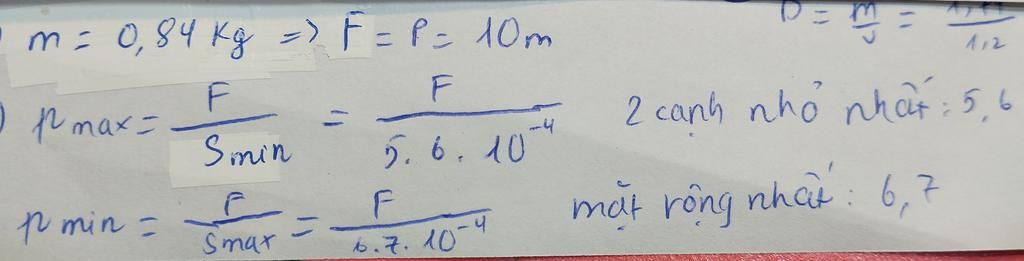 m = 0,84 Kg => F = P = 10m
D = m/v = /1,2
p max = F/S min = F/5.6.10^-4 2 cạnh nhỏ nhất : 5, 6
p min = F/S max = F/6.7.10^-4 mặt rộng nhất : 6, 7